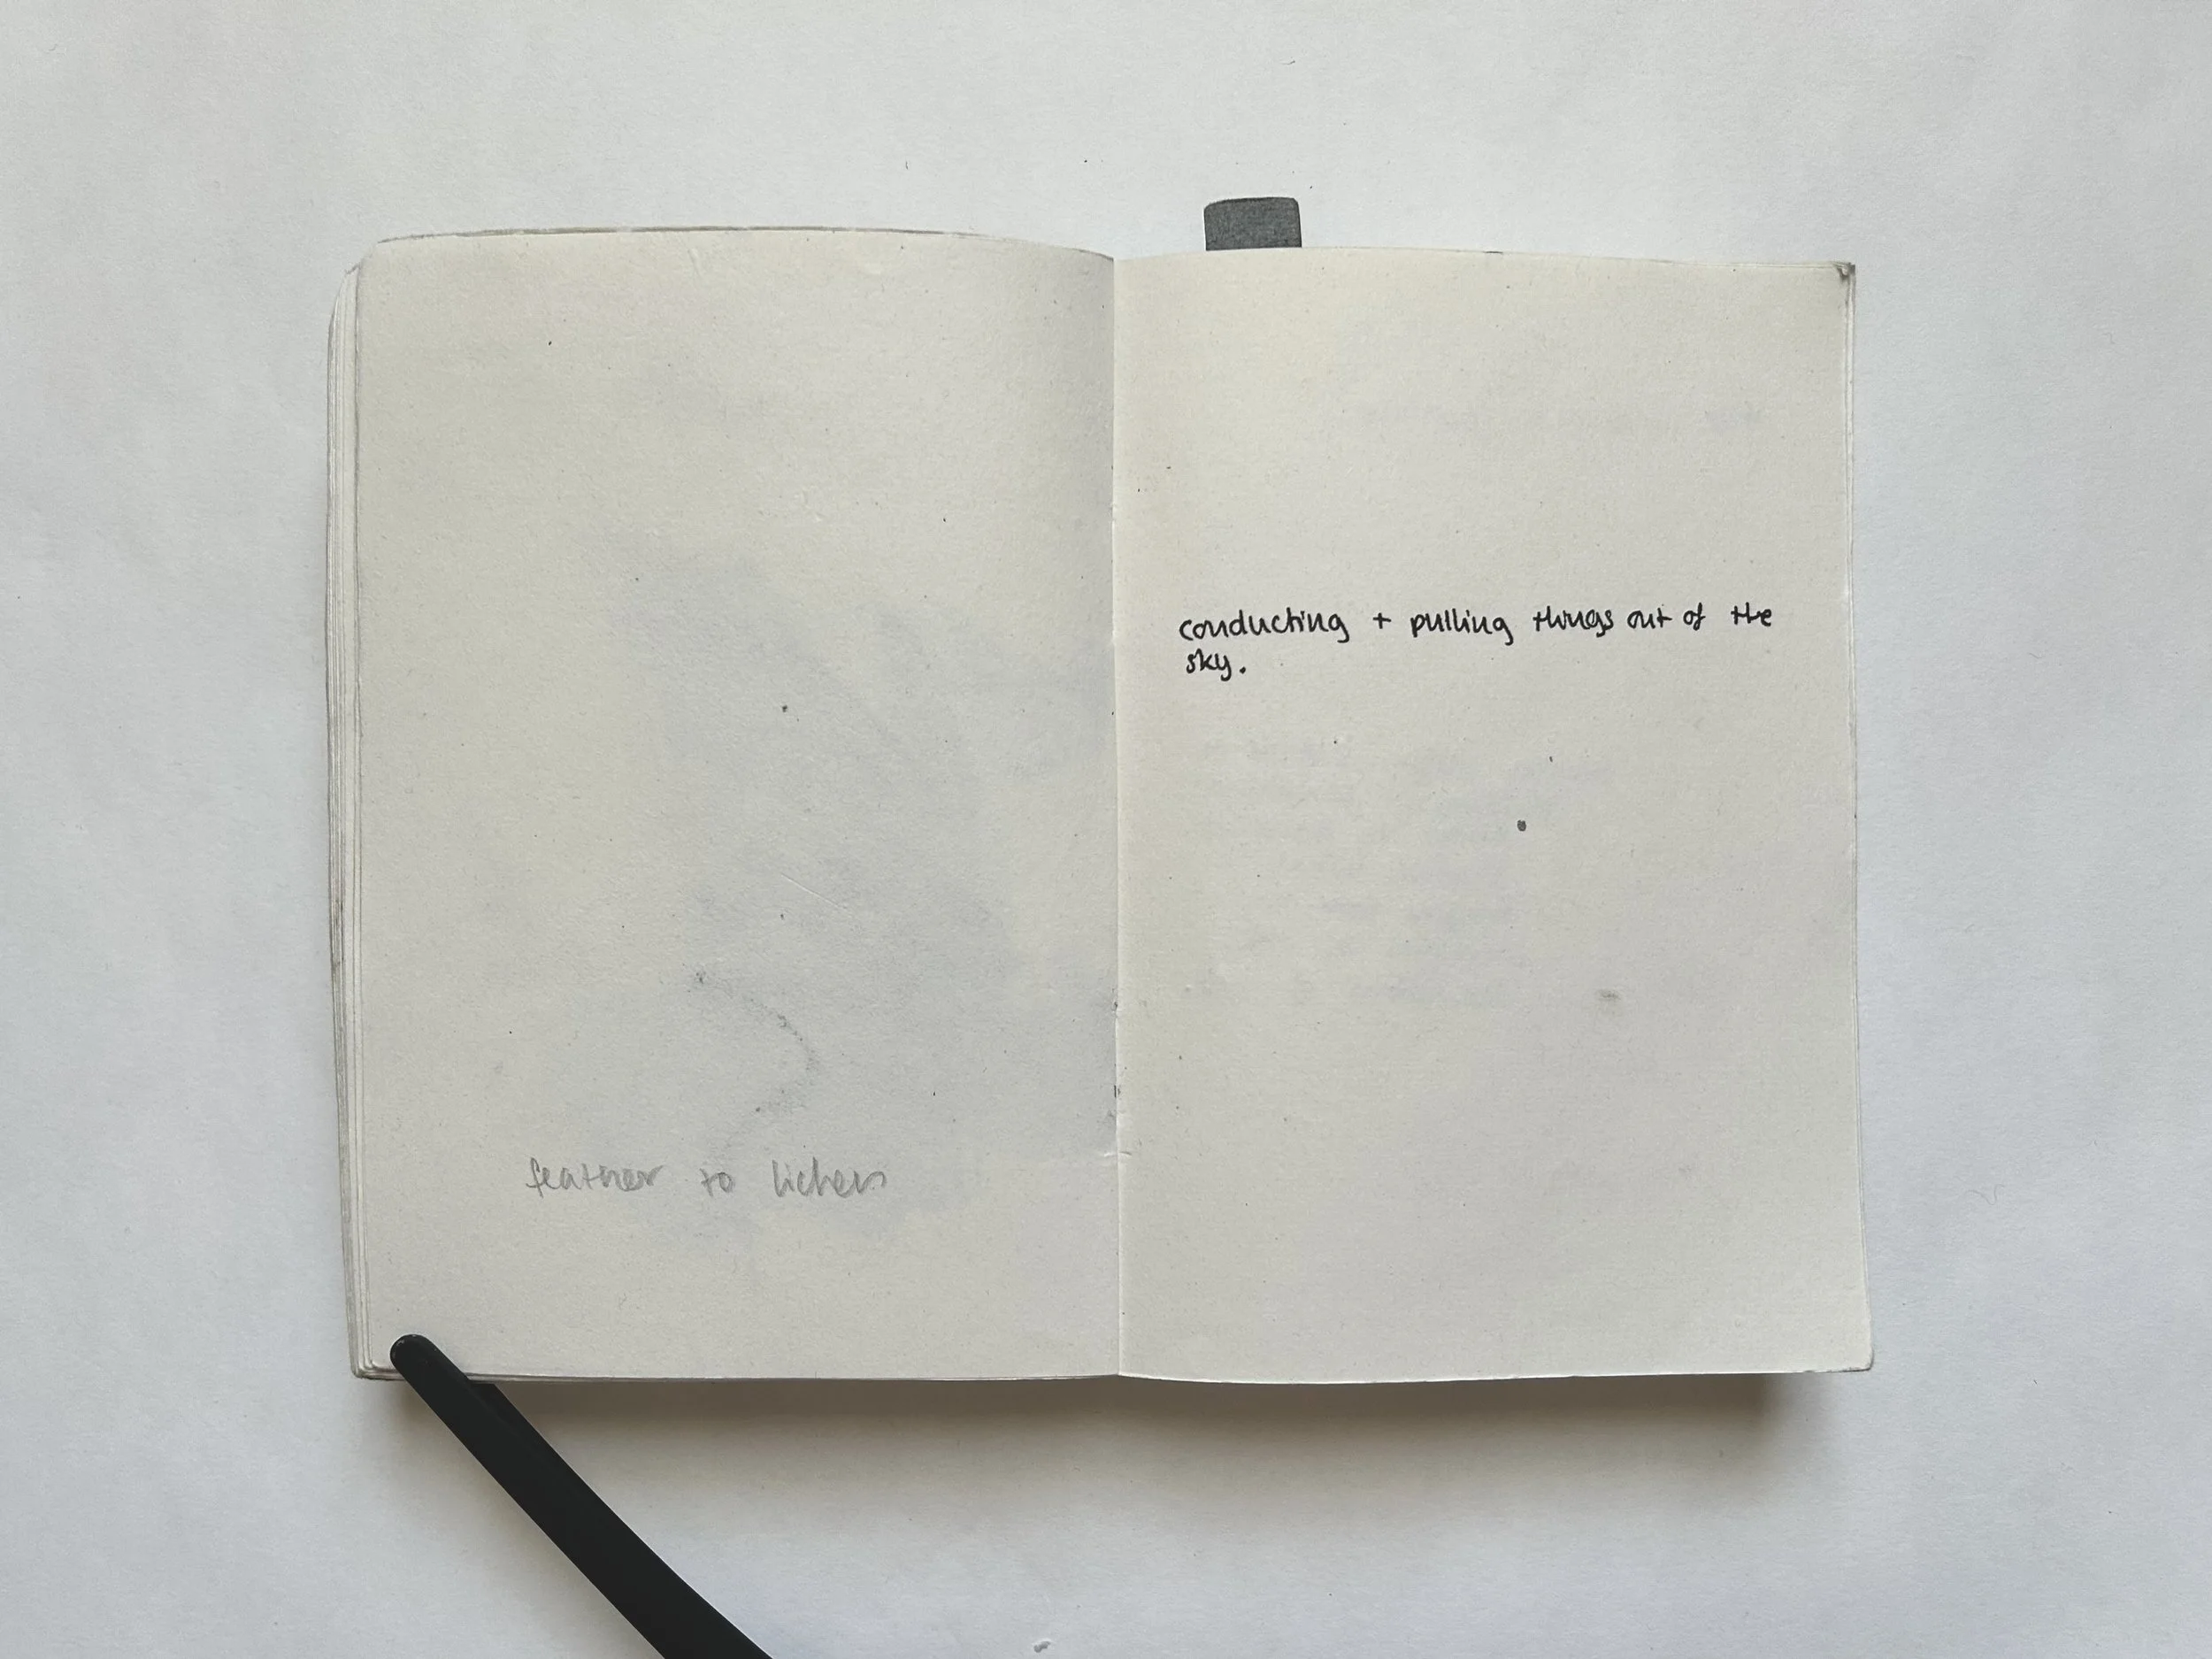 feather to lichen
conducting + pulling things out of the
sky.